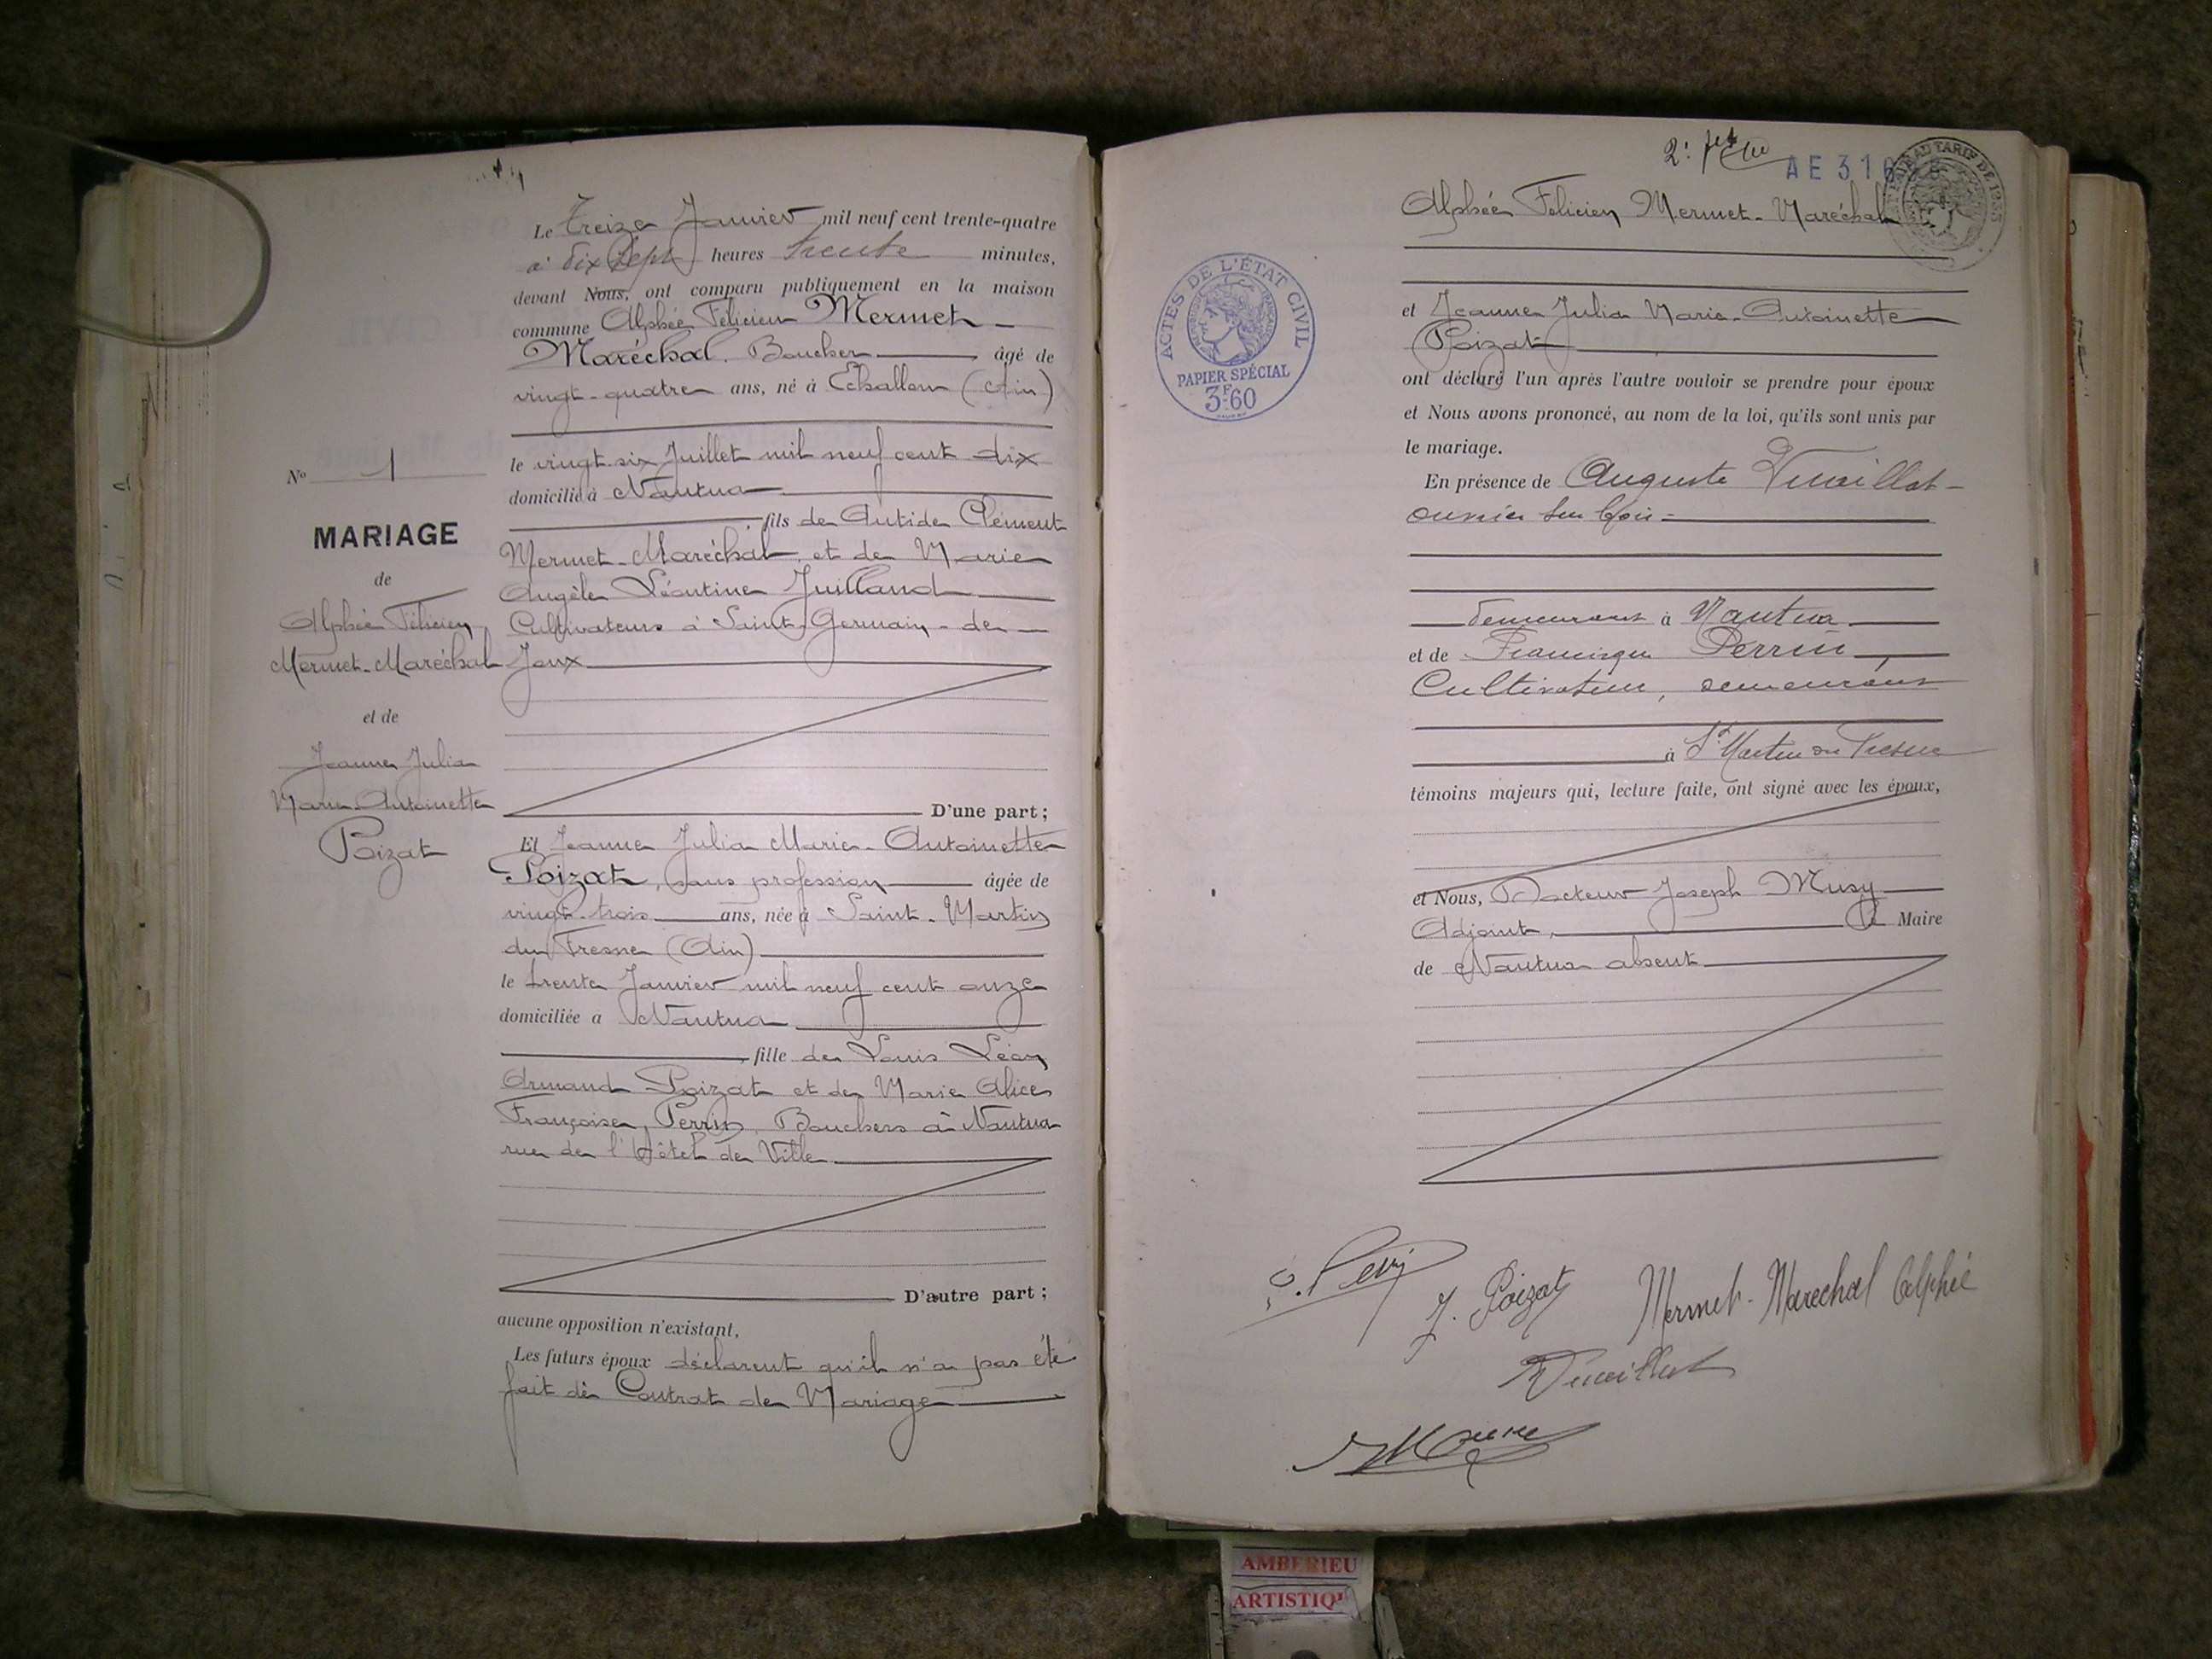 Le Treize Janvier mil neuf cent trente-quatre
à dix sept heures trente minutes,
devant Nous, ont comparu publiquement en la maison
commune Alphée Félicien Mermet-
Maréchal, Boucher âgé de
vingt-quatre ans, né à Echallon (Ain)
le vingt-six Juillet mil neuf cent dix
domicilié à Nantua
fils de Antide Clément
Mermet-Maréchal et de Marie
Angèle Léontine Juilland
Cultivateurs à Saint-Germain-de-
Joux
D'une part;
Et Jeanne Julia Marie-Antoinette
Poizat, sans profession âgée de
vingt-trois ans, née à Saint-Martin
du Fresne (Ain)
le trente Janvier mil neuf cent onze
domiciliée à Nantua
fille de Louis Léon
Armand Poizat et de Marie Alice
Françoise Perrin, Bouchers à Nantua
rue de l'Hôtel de Ville
D'autre part;
aucune opposition n'existant,
Les futurs époux déclarent qu'il n'a pas été
fait de Contrat de Mariage
N° 1
MARIAGE
de
Alphée Félicien
Mermet-Maréchal
et de
Jeanne Julia
Marie-Antoinette
Poizat
2e
AE 31
PAPIER AU TARIF DE 1933
ACTES DE L'ÉTAT CIVIL
PAPIER SPÉCIAL
3F.60
Alphée Félicien Mermet-Maréchal
et Jeanne Julia Marie-Antoinette
Poizat
ont déclaré l'un après l'autre vouloir se prendre pour époux
et Nous avons prononcé, au nom de la loi, qu'ils sont unis par
le mariage.
En présence de Auguste Vuaillat
ouvrier sur bois
demeurant à Nantua
et de Francisque Perrin,
Cultivateur, demeurant
à St Martin du Fresne
témoins majeurs qui, lecture faite, ont signé avec les époux,
et Nous, Docteur Joseph Musy
Adjoint, le Maire
de Nantua absent
J. Poizat
Mermet-Marechal Alphée
Vuaillat
AMBERIEU
ARTISTIQ